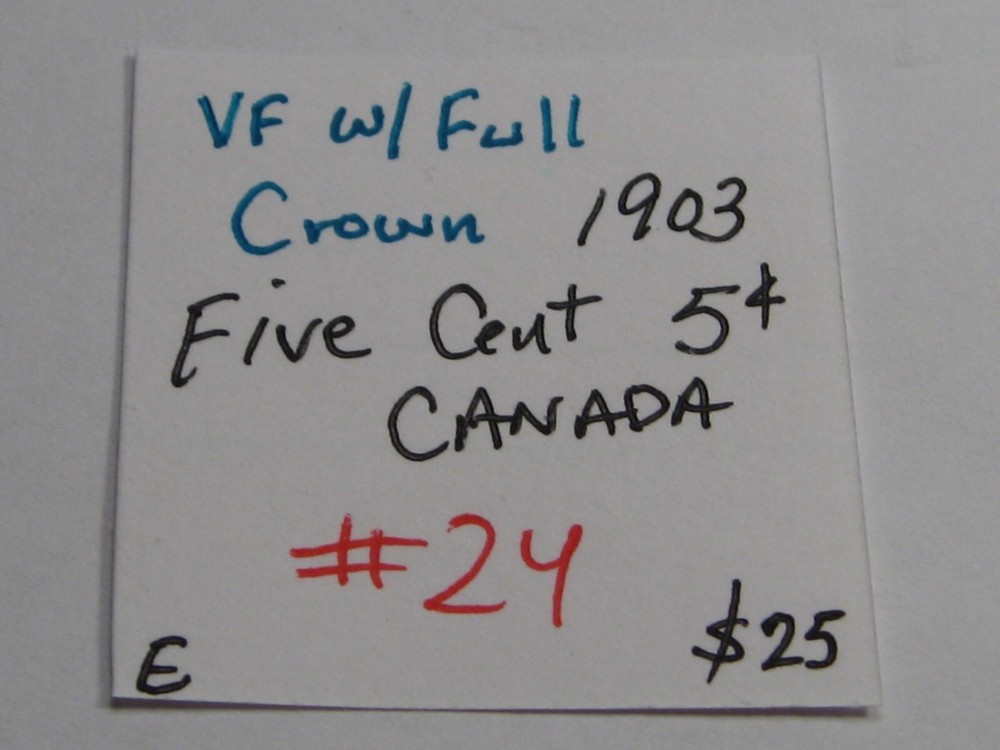 VF w/ Full
Crown 1903
Five Cent 5¢
CANADA
#24
E $25